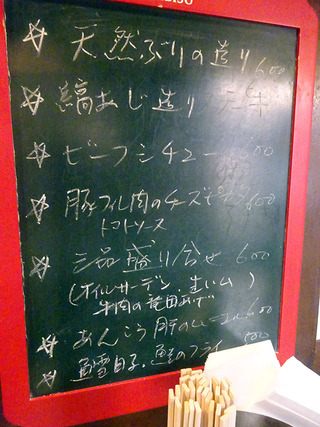 ☆ 天然ぶりの造り 600
☆ 縞あじ造り
☆ ビーフシチュー 600
☆ 豚フィレ肉のチーズ 600
トマトソース
☆ 三品盛り合せ 600
(オイルサーデン・生ハム
牛肉の竜田あげ)
☆ あんこう肝の 600
☆ 鱈白子・鮭のフライ